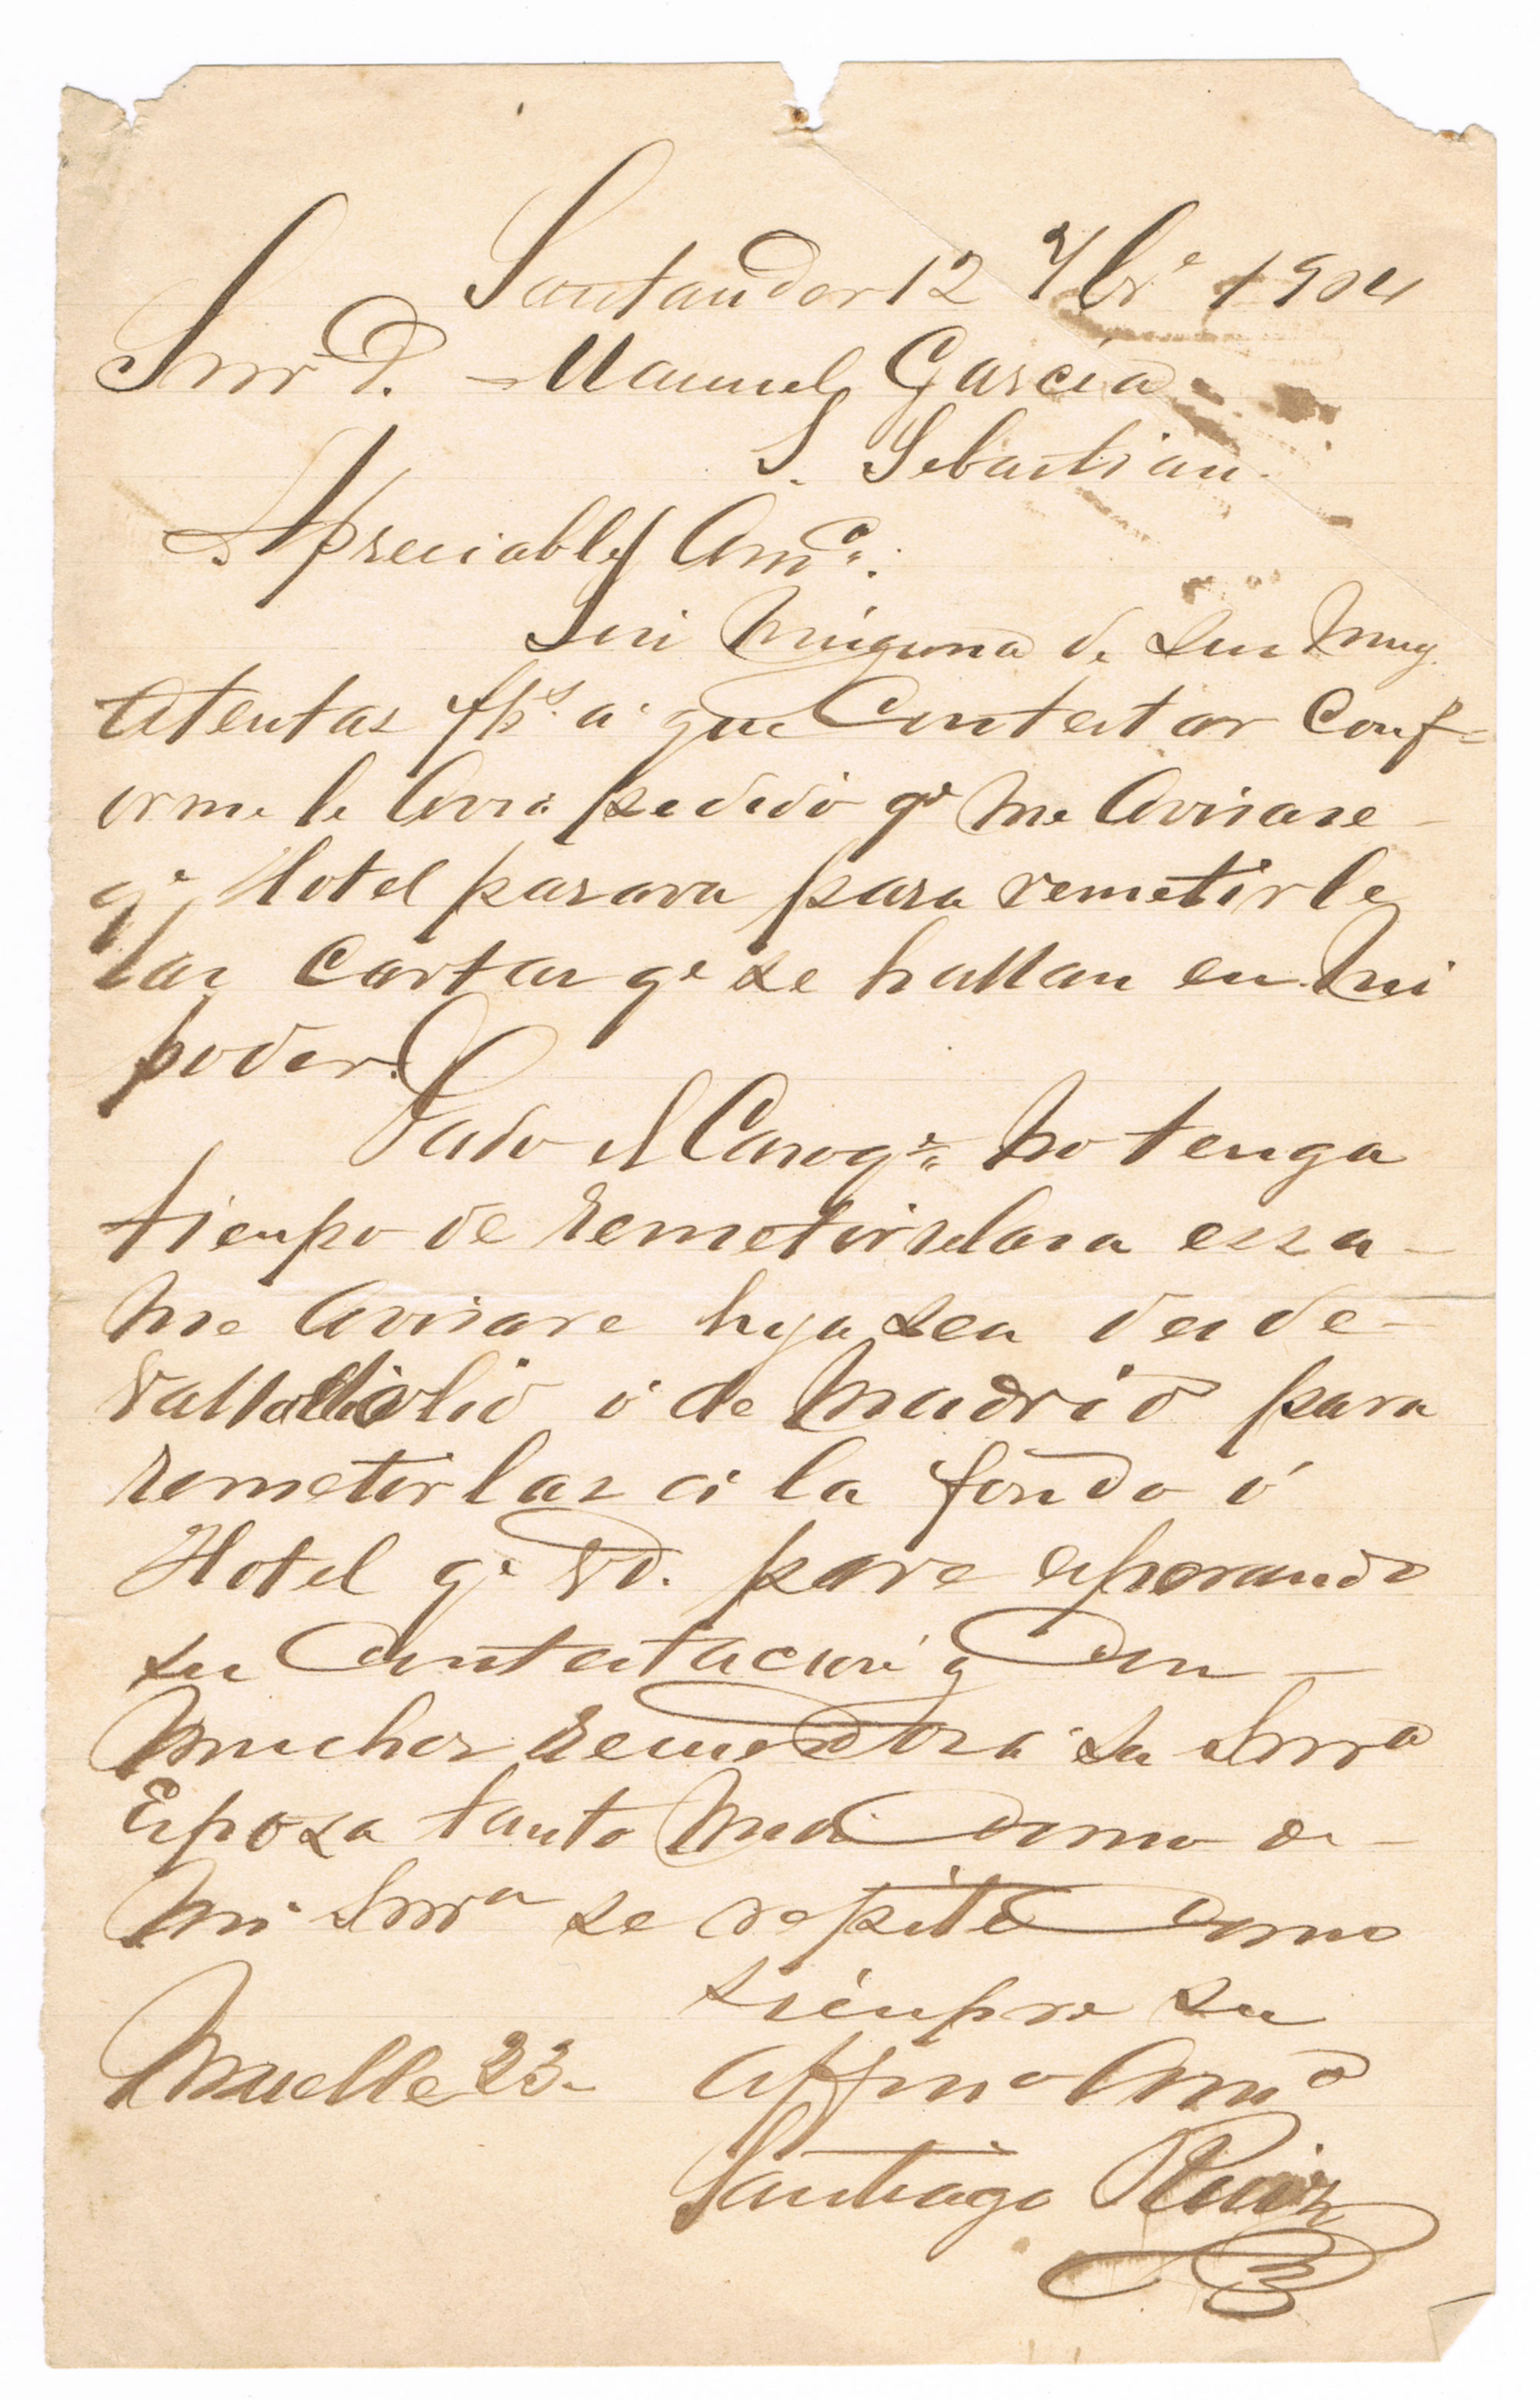 Santander 12 7bre 1904
Snr D. Manuel Garcia
S. Sebastian.
Apreciable Amo.
Sin ninguna de sus muy
atentas fhs. a que Contestar Conf=
orme le avia pedido qe me avisase
qe Hotel parava para remetirle
las Cartas qe se hallan en mi
poder.
Dado el Caso qe no tenga
tienpo de remetirselas a essa
me avisare hya sea desde
Valladolid ó de Madrid para
remetirlas a la fonda ó
Hotel qe Vd. pare esperando
su Contestacion y Con
muchos recuerdos a su Snra
Esposa tanto mios Como de
mi Snra se repite Como
sienpre su
Affmo Amo
Muelle 23.
Santiago Ruiz